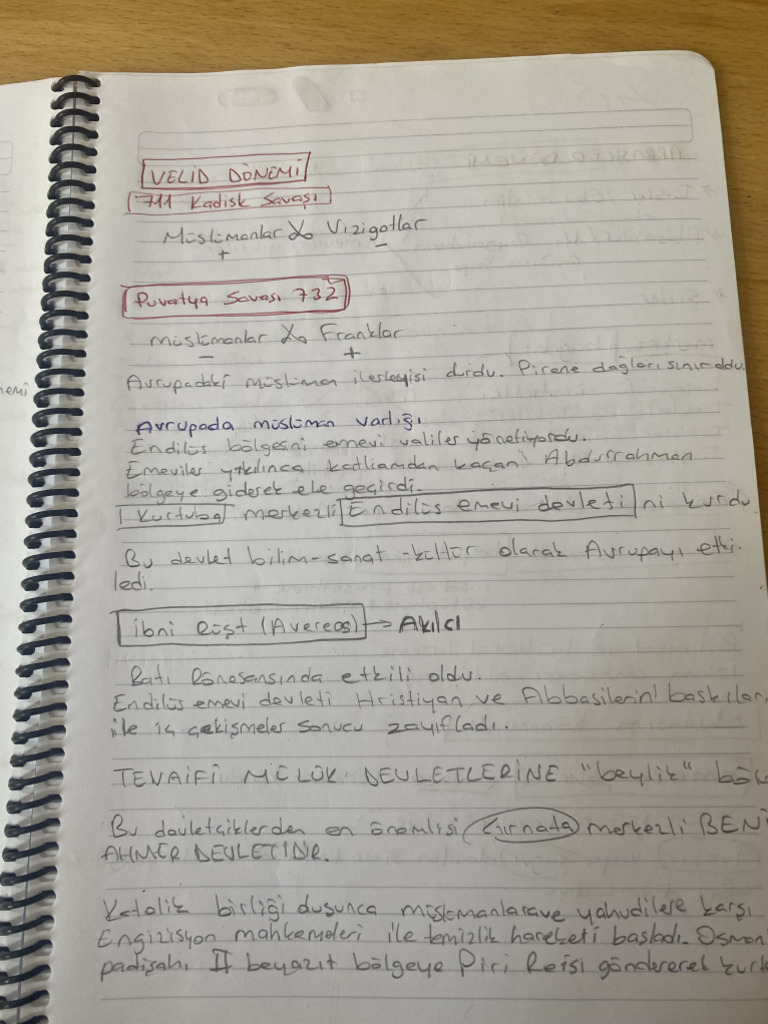 VELİD DÖNEMİ
711 Kadisk Savaşı
Müslümanlar X Vizigotlar
+ −
Puvatya Savası 732
müslümanlar X Franklar
− +
Avrupadaki müslüman ilerleyişi durdu. Pirene dağları sınır oldu.
nemi
Avrupada müslüman varlığı
Endülüs bölgesni emevi valiler yönetiyordu.
Emeviler yıkılınca katliamdan kaçan Abdurrahman
bölgeye giderek ele geçirdi.
Kurtuba merkezli Endülüs emevi devleti ni kurdu
Bu devlet bilim-sanat-kültür olarak Avrupayı etki-
ledi.
ibni Rüşt (Avereos) → Akılcı
Batı Rönesansında etkili oldu.
Endülüs emevi devleti Hristiyan ve Abbasilerin baskıları
ile iç çekişmeler sonucu zayıfladı.
TEVAİFİ MÜLÜK DEVLETLERİNE "beylik" böl
Bu devletçiklerden en önemlisi Gırnata merkezli BENİ
AHMER DEVLETİDİR.
Katolik birliği duşunca müslümanlarave yahudilere karşı
Engizisyon mahkemeleri ile temizlik hareketi başladı. Osman
padişahı II beyazıt bölgeye Piri Reisi göndererek kurta